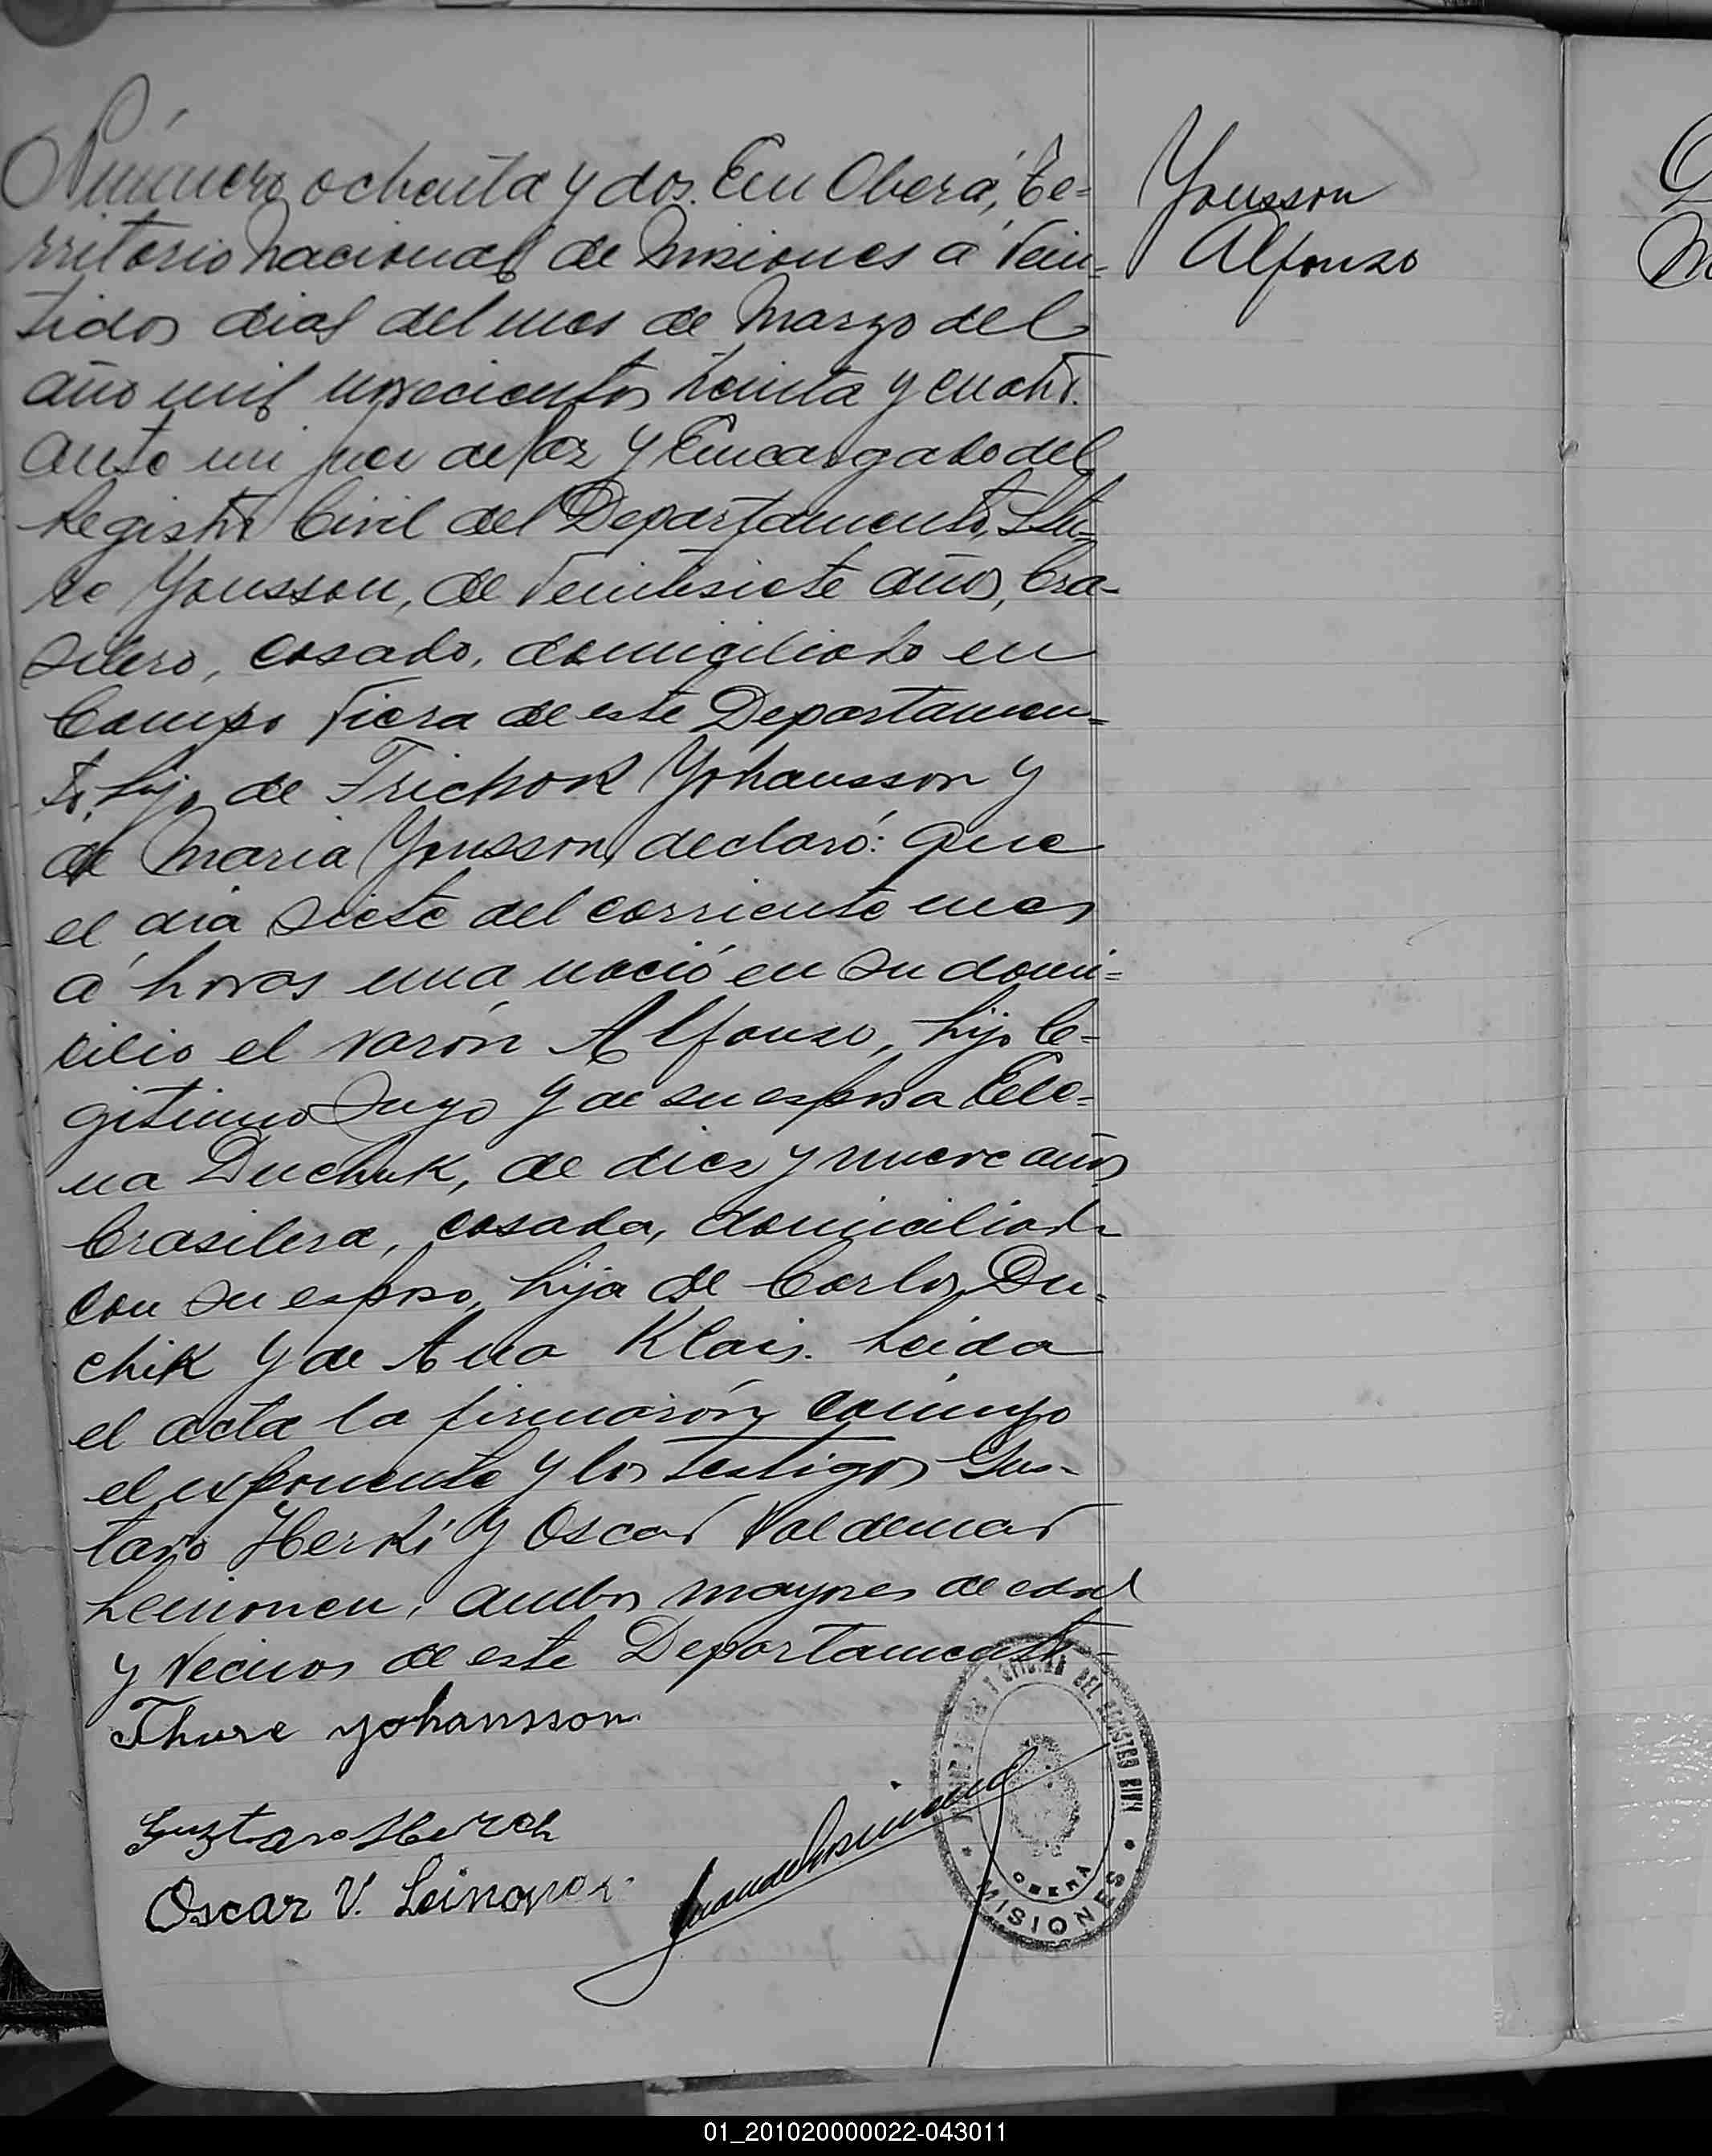 Número ochenta y dos. En Oberá, Te=
rritorio Nacional de Misiones a vein=
tidos dias del mes de Marzo del
año mil novecientos treinta y cuatro.
ante mi Juez de Paz y Encargado del
Registro Civil del Departamento, Stu=
re Yonsson, de veintisiete años, bra-
silero, casado, domiciliado en
Campo Viera de este Departamen=
to, hijo de Frichok Yohansson y
de Maria Yonsson, declaró: Que
el dia siete del corriente mes
á horas una nació en su domi=
cilio el varón Alfonso, hijo le=
gitimo suyo y de su esposa Ele=
na Duchuk, de diez y nueve años
brasilera, casada, domiciliada
con su esposo, hija de Carlos Du=
chik y de Ana Klais. Leida
el acta la firmarón conmigo
el exponente y los testigos Gus-
tavo Herki y Oscar Valdemar
Leinonen, ambos mayores de edad
y vecinos de este Departamento=
Thure Yohansson.
Gustavo
Oscar V. Leinonen.
Yonsson
Alfonso
DEL REGISTRO CIVIL
OBERA
MISIONES
01_201020000022-043011